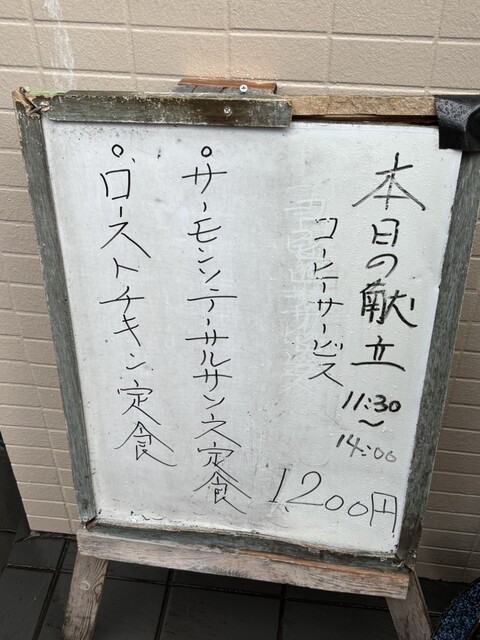 本日の献立
11:30
〜
14:00
コーヒーサービス
1200円
°サーモンソテーサルサンス定食
°ローストチキン定食